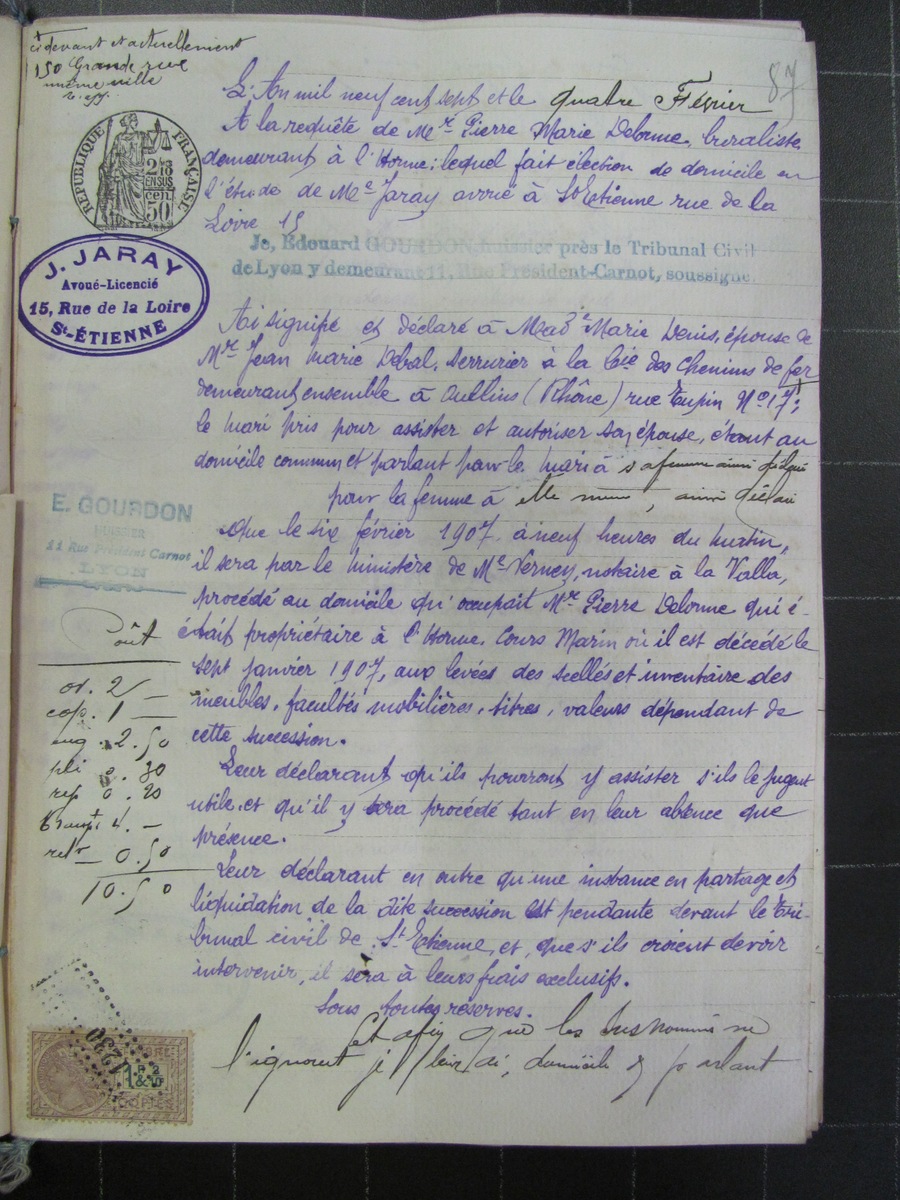 ci devant et actuellement
150 Grande rue
même ville
87
L'An mil neuf cent sept et le quatre Février
A la requête de Mr Pierre Marie Delorme, buraliste
demeurant à l'Horme; lequel fait élection de domicile en
l'étude de Me Jaray avoué à St Etienne rue de la
Loire 15
Je, Edouard GOURDON, huissier près le Tribunal Civil
de Lyon y demeurant 11, Rue Président-Carnot, soussigné
RÉPUBLIQUE FRANÇAISE
2/10 EN SUS
50 cen.
J. JARAY
Avoué-Licencié
15, Rue de la Loire
St-ÉTIENNE
Ai signifié et déclaré à Made Marie Denis, épouse de
Mr Jean Marie Debal, serrurier à la Cie des Chemins de fer
demeurant ensemble à Oullins (Rhône) rue Tupin No 17;
le mari pris pour assister et autoriser son épouse, étant au
domicile commun et parlant pour le mari à sa femme ainsi déclaré
pour la femme à elle même, ainsi déclaré
E. GOURDON
HUISSIER
11 Rue Président Carnot
LYON
Que le six février 1907 à neuf heures du matin,
il sera par le ministère de Me Verney, notaire à la Valla,
procédé au domicile qu'occupait Mr Pierre Delorme qui é-
était propriétaire à l'Horme, Cours Marin où il est décédé le
sept janvier 1907, aux levées des scellés et inventaire des
meubles, facultés mobilières, titres, valeurs dépendant de
cette succession.
Coût
or. 2 —
cop. 1 —
2.50
pli 0.30
rep 0.20
Transpt 4. —
0.50
10.50
Leur déclarant qu'ils pourront y assister s'ils le jugent
utile et qu'il y sera procédé tant en leur absence que
présence.
Leur déclarant en outre qu'une instance en partage et
liquidation de la dite succession est pendante devant le Tri-
bunal civil de St Etienne et que s'ils croient devoir
intervenir, il sera à leurs frais exclusifs.
Sous toutes réserves.
Et afin que les susnommés ne
l'ignorent je leur ai, domicile & parlant